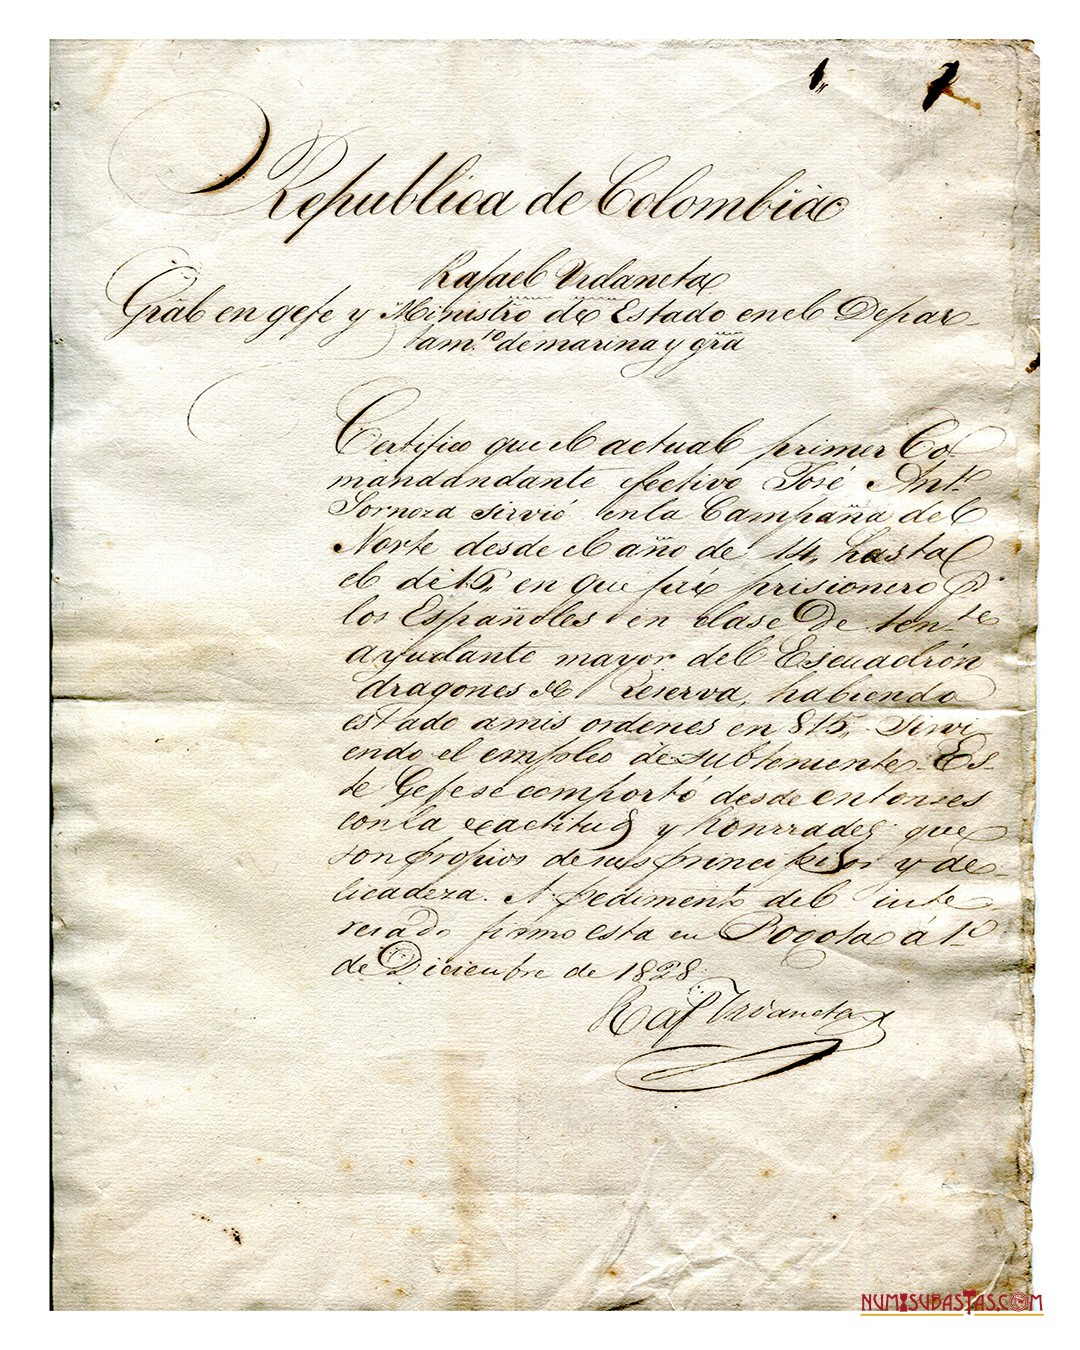 1,, 2
Republica de Colombia
Rafael Urdaneta
Gräl en gefe y Ministro de Estado en el Depar-
tam.to de marina y grã
Certifico que el actual primer Co-
mandandante efectivo José Ant.o
Sornoza sirvió en la Campaña del
Norte desde el año de 14, hasta
el de 16, en que fué prisionero p.r
los Españoles en clase de ten.te
ayudante mayor del Escuadrón
dragones de Reserva, habiendo
estado a mis ordenes en 815, sirvi
endo el empleo de subteniente. Es-
te Gefe se comportó desde entonses
con la exactitud y honrradez que
son propios de sus principios y de-
licadeza. A pedimento del inte-
resado firmo esta en Bogota á 1.o
de Diciembre de 1828.
Raf Urdaneta
NUMISUBASTAS.COM